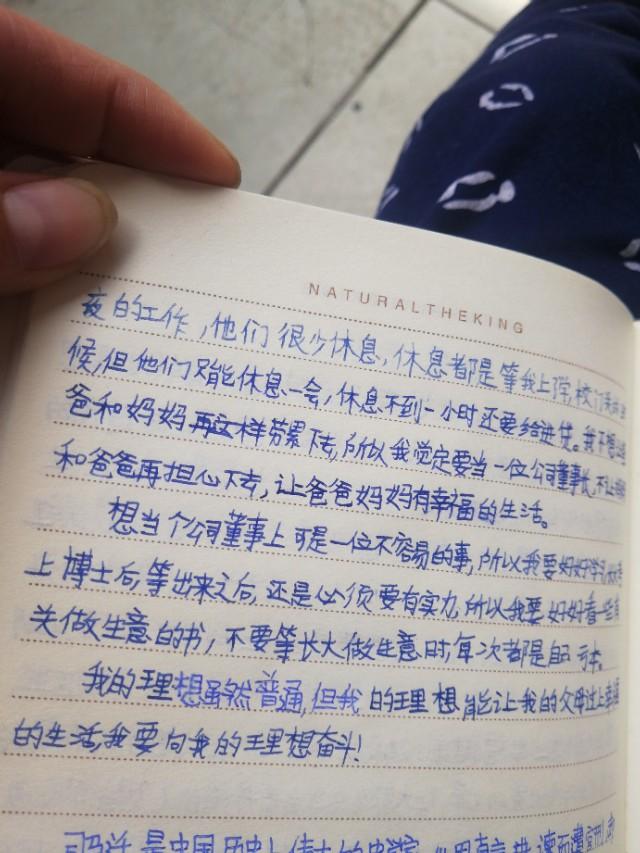 NATURALTHEKING
夜的工作,他们很少休息,休息都是等我上学,校门
候,但他们只能休息一会,休息不到一小时还要给进货。我不想
爸和妈妈再这样劳累下去,所以我觉定要当一位公司董事长,不让
和爸爸再担心下去,让爸爸妈妈有幸福的生活。
想当个公司董事上可是一位不容易的事,所以我要好好学习
上博士后,等出来之后,还是必须要有实力,所以我要好好看一些有
关做生意的书,不要等长大做生意时,每次都是自己亏本。
我的理想虽然普通,但我的理想能让我的父母过上幸福
的生活,我要向我的理想奋斗!
是中国历史上伟大的